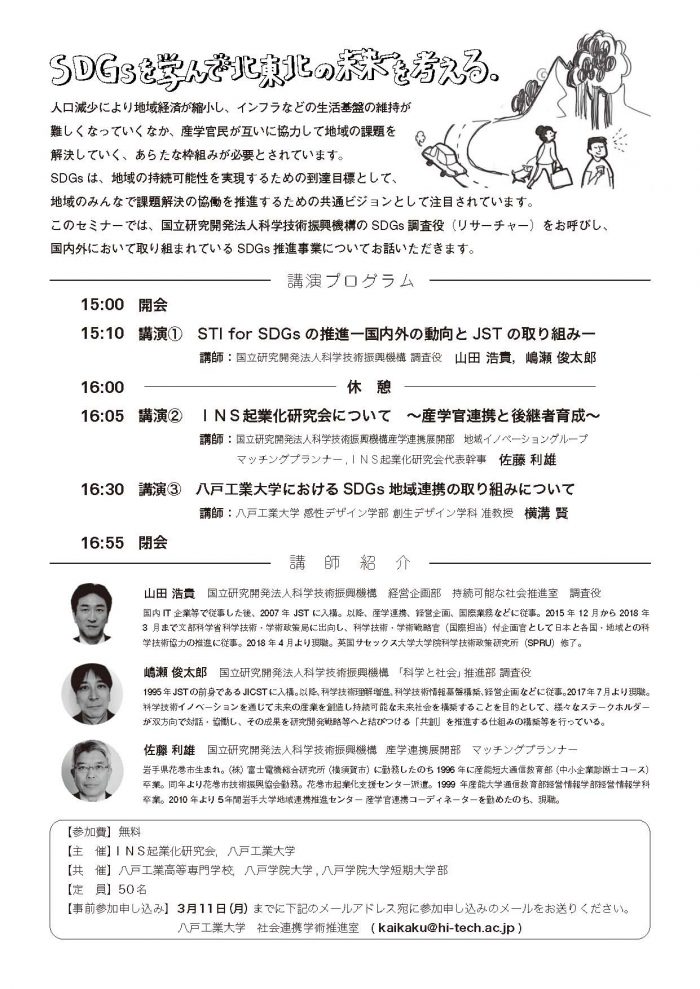 SDGsを学んで北東北の未来を考える.
人口減少により地域経済が縮小し、インフラなどの生活基盤の維持が
難しくなっていくなか、産学官民が互いに協力して地域の課題を
解決していく、あらたな枠組みが必要とされています。
SDGs は、地域の持続可能性を実現するための到達目標として、
地域のみんなで課題解決の協働を推進するための共通ビジョンとして注目されています。
このセミナーでは、国立研究開発法人科学技術振興機構の SDGs 調査役（リサーチャー）をお呼びし、
国内外において取り組まれている SDGs 推進事業についてお話いただきます。
講演プログラム
15:00 開会
15:10 講演① STI for SDGs の推進ー国内外の動向と JST の取り組みー
講師：国立研究開発法人科学技術振興機構 調査役 山田 浩貴，嶋瀬 俊太郎
16:00 休 憩
16:05 講演② ＩＮＳ起業化研究会について ～産学官連携と後継者育成～
講師：国立研究開発法人科学技術振興機構産学連携展開部 地域イノベーショングループ
マッチングプランナー，ＩＮＳ起業化研究会代表幹事 佐藤 利雄
16:30 講演③ 八戸工業大学における SDGs 地域連携の取り組みについて
講師：八戸工業大学 感性デザイン学部 創生デザイン学科 准教授 横溝 賢
16:55 閉会
講 師 紹 介
山田 浩貴 国立研究開発法人科学技術振興機構 経営企画部 持続可能な社会推進室 調査役
国内 IT 企業等で従事した後、2007 年 JST に入構。以降、産学連携、経営企画、国際業務などに従事。2015 年 12 月から 2018 年
3 月まで文部科学省科学技術・学術政策局に出向し、科学技術・学術戦略官（国際担当）付企画官として日本と各国・地域との科
学技術協力の推進に従事。2018 年 4 月より現職。英国サセックス大学大学院科学技術政策研究所（SPRU）修了。
嶋瀬 俊太郎 国立研究開発法人科学技術振興機構 「科学と社会」推進部 調査役
1995年JSTの前身であるJICSTに入構。以降、科学技術理解増進、科学技術情報基盤構築、経営企画などに従事。2017年7月より現職。
科学技術イノベーションを通じて未来の産業を創造し持続可能な未来社会を構築することを目的として、様々なステークホルダー
が双方向で対話・協働し、その成果を研究開発戦略等へと結びつける「共創」を推進する仕組みの構築等を行っている。
佐藤 利雄 国立研究開発法人科学技術振興機構 産学連携展開部 マッチングプランナー
岩手県花巻市生まれ。（株）富士電機総合研究所（横須賀市）に勤務したのち 1996 年に産能短大通信教育部（中小企業診断士コース）
卒業。同年より花巻市技術振興協会勤務。花巻市起業化支援センター派遣。1999 年産能大学通信教育部経営情報学部経営情報学科
卒業。2010 年より 5 年間岩手大学地域連携推進センター 産学官連携コーディネーターを勤めたのち、現職。
【参加費】無料
【主 催】ＩＮＳ起業化研究会，八戸工業大学
【共 催】八戸工業高等専門学校，八戸学院大学，八戸学院大学短期大学部
【定 員】50名
【事前参加申し込み】3月11日（月）までに下記のメールアドレス宛に参加申し込みのメールをお送りください。
八戸工業大学 社会連携学術推進室 （ kaikaku@hi-tech.ac.jp ）